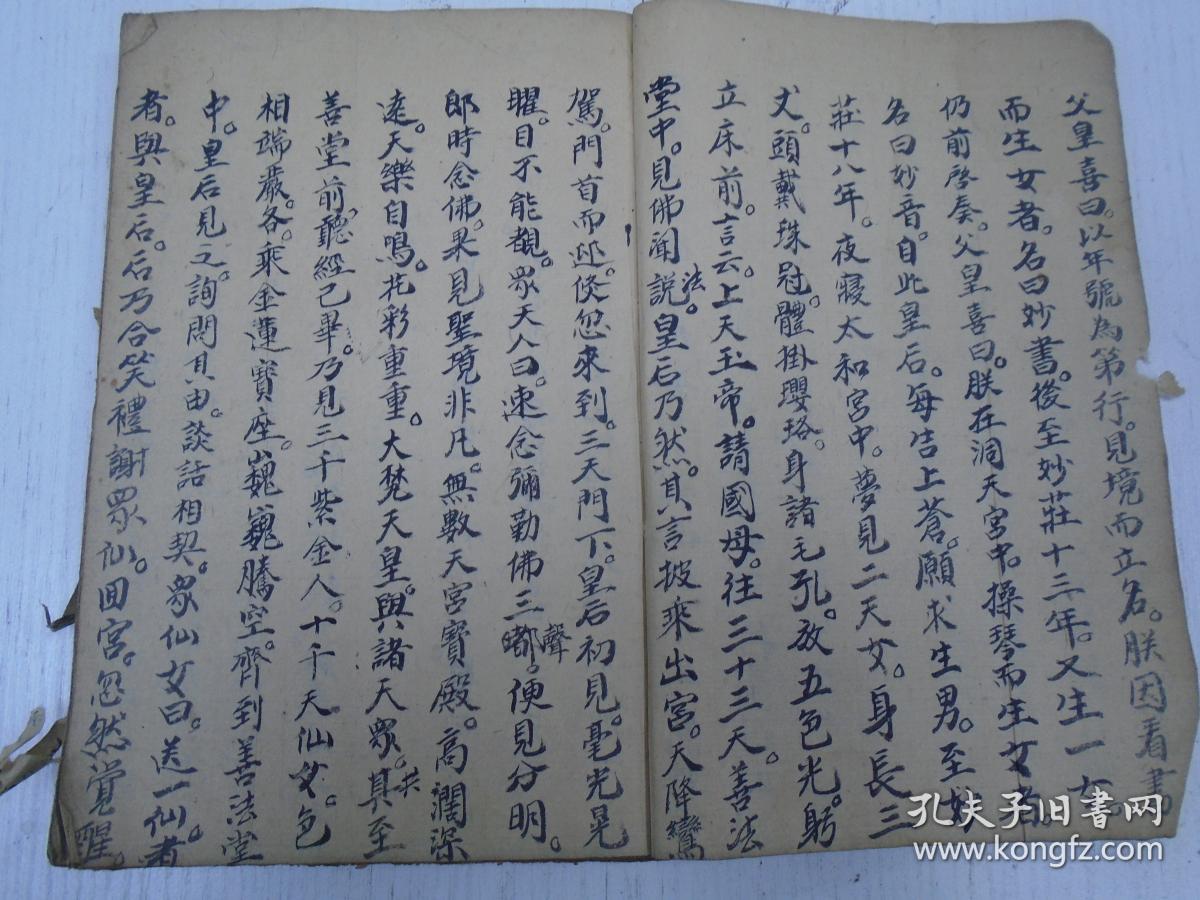 父皇喜曰。以年號為第行。見境而立名。朕因看書
而生女者。名曰妙書。後至妙莊十三年。又生一女。
仍前啓奏。父皇喜曰。朕在洞天宮中。操琴而生女者。
名曰妙音。自此皇后。每告上蒼。願求生男。至妙
莊十八年。夜寢太和宮中。夢見二天女。身長三
丈。頭戴珠冠。體掛瓔珞。身諸毛孔。放五色光。躬
立床前。言云。上天玉帝。請國母。往三十三天。善法
堂中。見佛聞說法。皇后乃然。其言披乘出宮。天降鸞
駕。門首而迎。倏忽來到。三天門下。皇后初見。毫光晃
曜。目不能覩。眾天人曰。速念彌勒佛三嘟聲。便見分明。
郎時念佛。果見聖境非凡。無數天宮寶殿。高濶深
遠。天樂自鳴。花彩重重。大梵天皇。與諸天眾。具共至
善堂前。聽經已畢。乃見三千紫金人。十千天仙女。色
相端嚴。各。乘金蓮寶座。巍巍騰空。齊到善法堂
中。皇后見之。詢問其由。談話相契。眾仙女曰。送一仙者
者。與皇后。后乃合笑禮謝眾仙。回宮。忽然覺醒。
孔夫子旧书网
www.kongfz.com